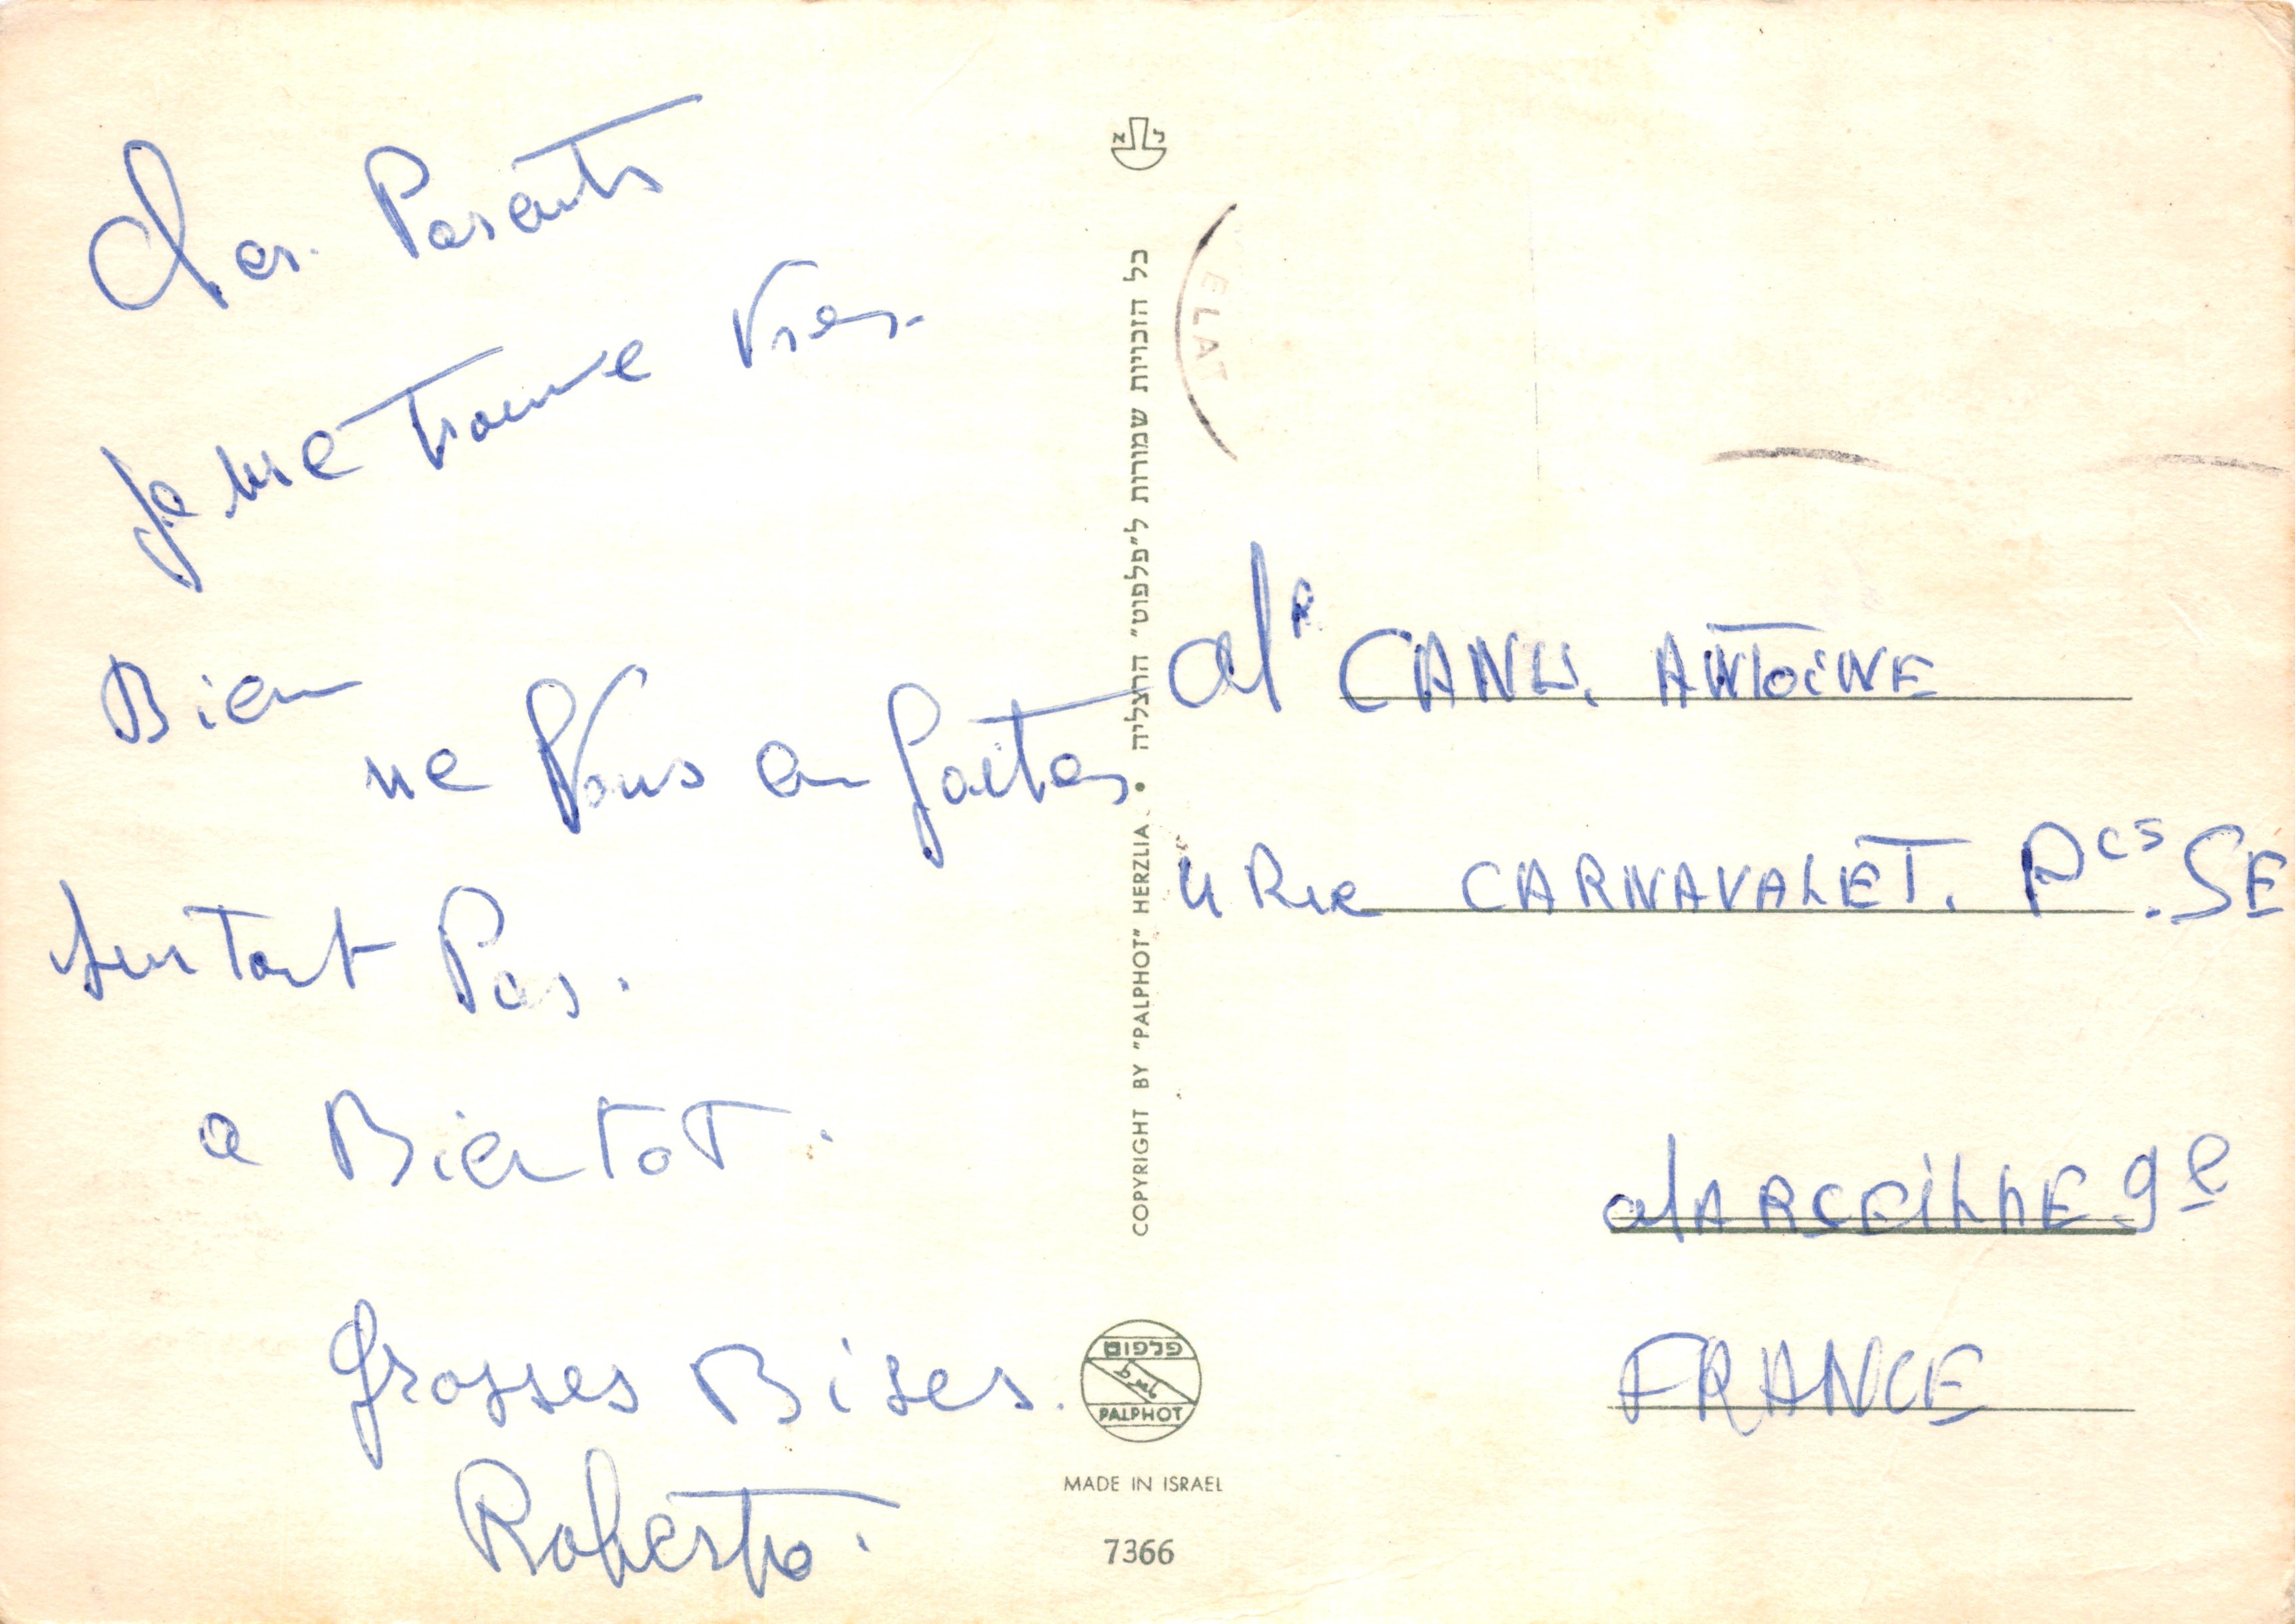 Chers Parents
Je me trouve très
Bien
ne Vous en faites
surtout Pas.
a Bientot.
Grosses Bises.
Roberto.
כל הזכויות שמורות ל"פלפוט" הרצליה • COPYRIGHT BY "PALPHOT" HERZLIA
ELAT
Mr CANU. ANTOINE
4 Rue CARNAVALET. Pcs. SE
MARSEILLE 9e
FRANCE
PALPHOT
MADE IN ISRAEL
7366